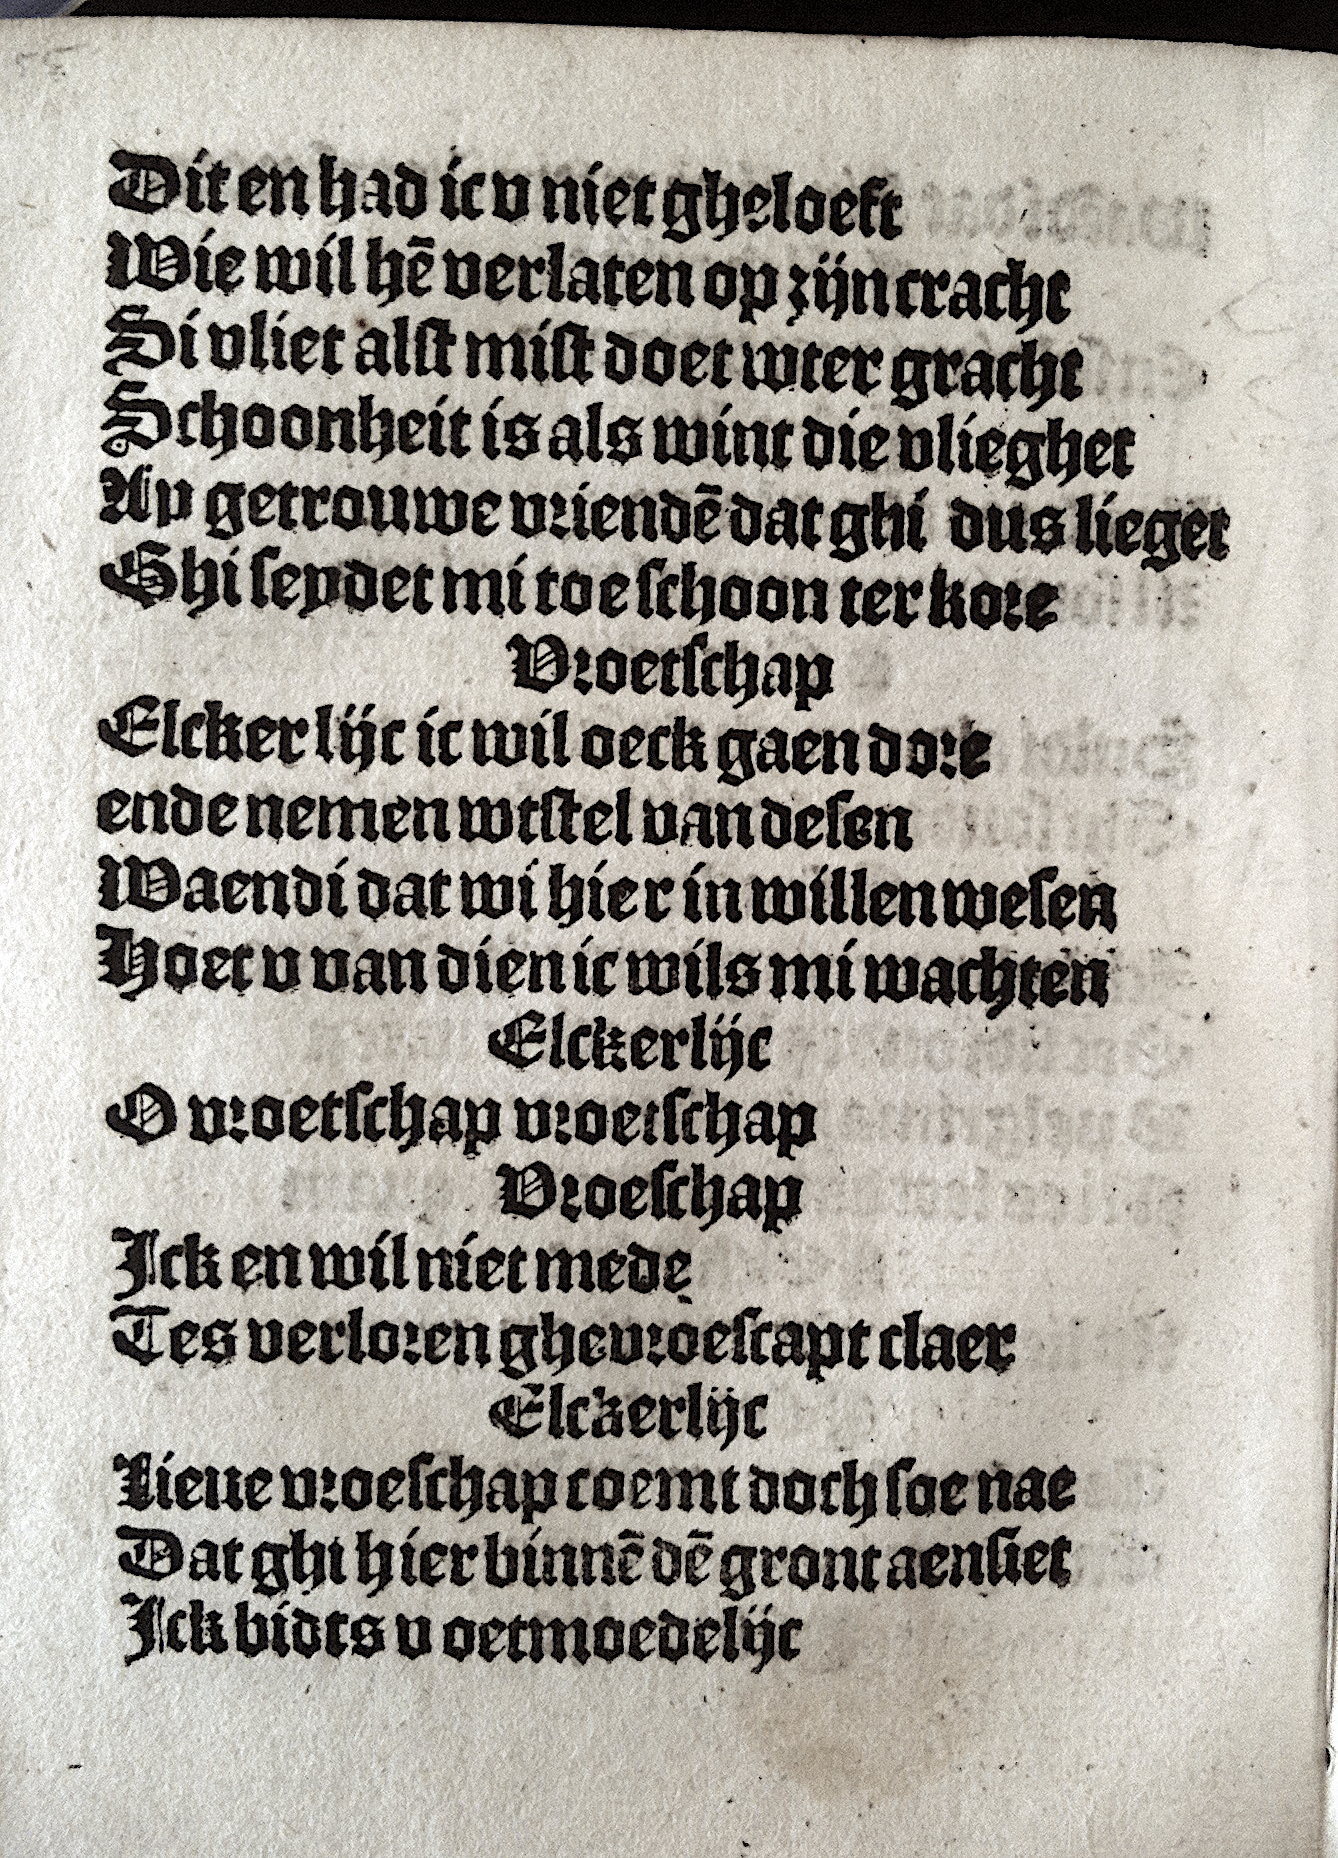 Dit en had ic v niet gheloeft
Wie wil hē verlaten op zijn cracht
Si vliet alst mist doet wter gracht
Schoonheit is als wint die vlieghet
Ay getrouwe vriendē dat ghi dus lieget
Ghi seydet mi toe schoon ter kore
Vroetschap
Elckerlijc ic wil oeck gaen dore
ende nemen wtstel van desen
Waendi dat wi hier in willen wesen
Hoet v van dien ic wils mi wachten
Elckerlijc
O vroetschap vroetschap
Vroeschap
Ick en wil niet mede
Tes verloren ghevroescapt claer
Elckerlijc
Lieue vroeschap coemt doch soe nae
Dat ghi hier binnē dē gront aensiet
Ick bidts v oetmoedelijc